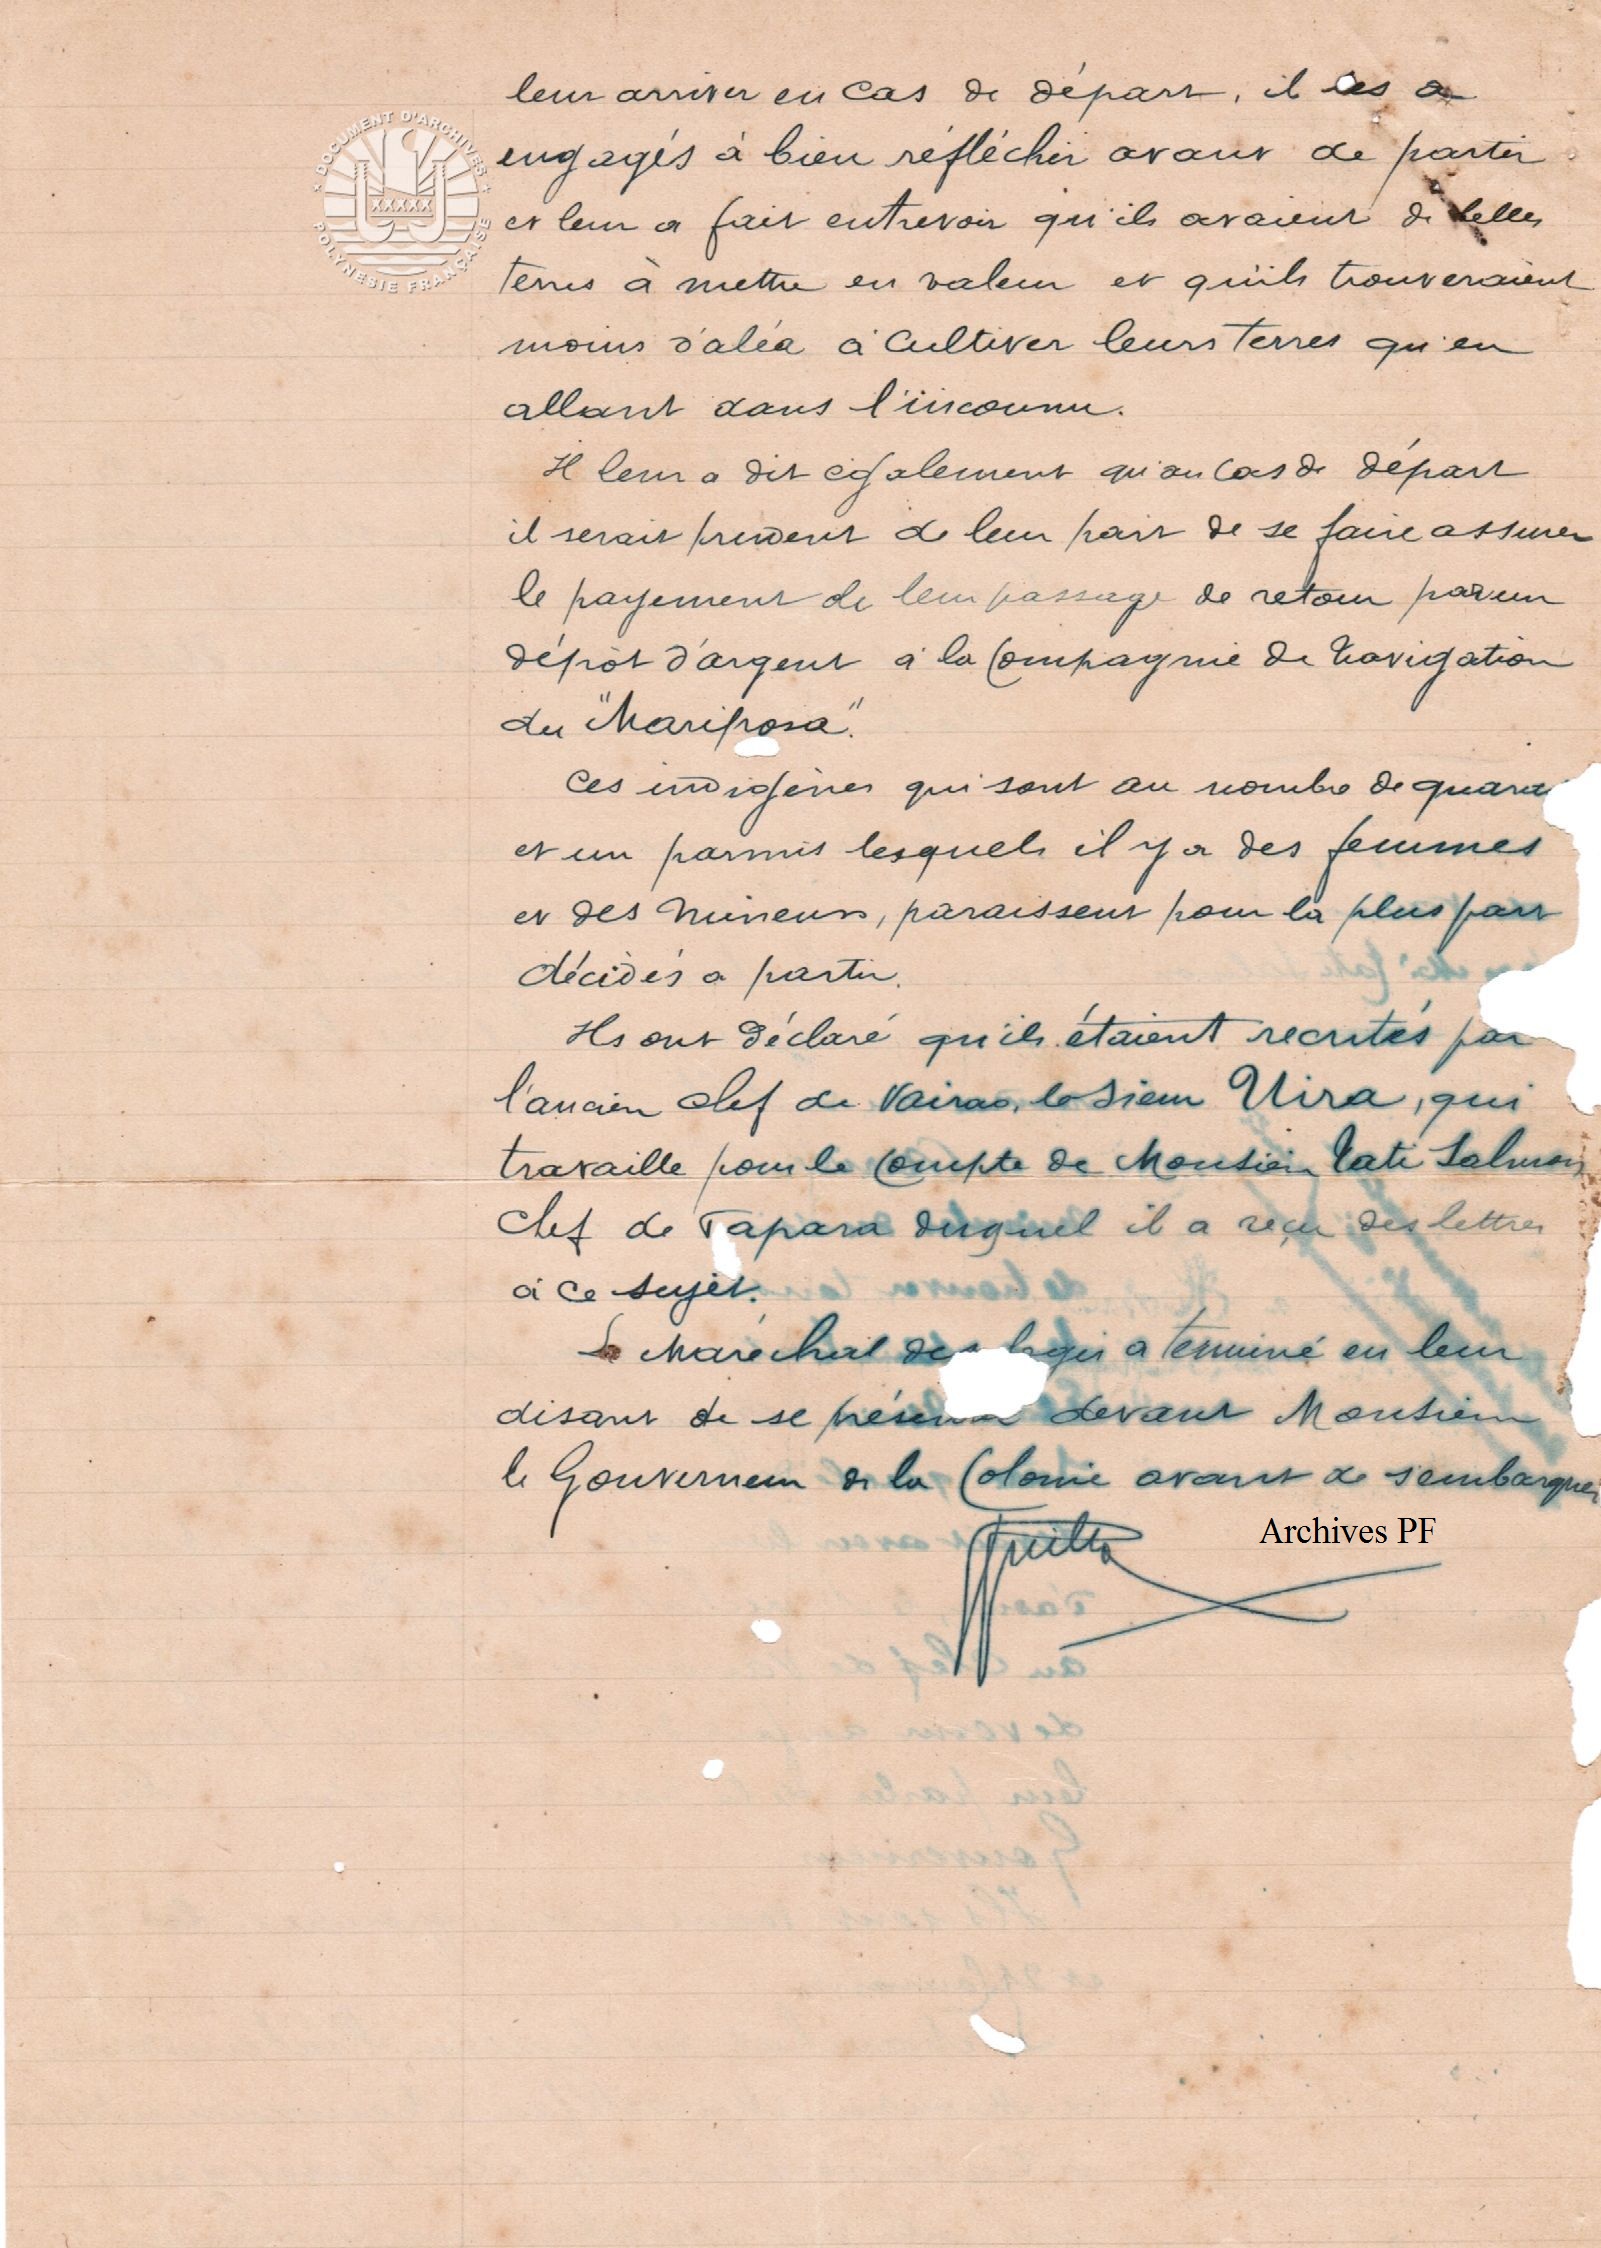 leur arriver en cas de départ, il les a
engagés à bien réfléchir avant de partir
et leur a fait entrevoir qu'ils avaient de belles
terres à mettre en valeur et qu'ils trouveraient
moins d'aléa à cultiver leurs terres qu'en
allant dans l'inconnu.
Il leur a dit également qu'au cas de départ
il serait prudent de leur part de se faire assurer
le payement de leur passage de retour par un
dépôt d'argent à la Compagnie de Navigation
du "Mariposa".
Ces indigènes qui sont au nombre de quaran
et un parmis lesquels il y a des femmes
et des mineurs, paraissent pour la plus part
décidés a partir.
Ils ont déclaré qu'ils étaient recrutés par
l'ancien chef de Vairao, le sieur Uira, qui
travaille pour le compte de Monsieur Tati Salmon
chef de Papara duquel il a reçu des lettres
à ce sujet.
Le Maréchal des logis a terminé en leur
disant de se présenter devant Monsieur
le Gouverneur de la Colonie avant de s'embarquer
Archives PF
DOCUMENT D'ARCHIVES
POLYNESIE FRANÇAISE